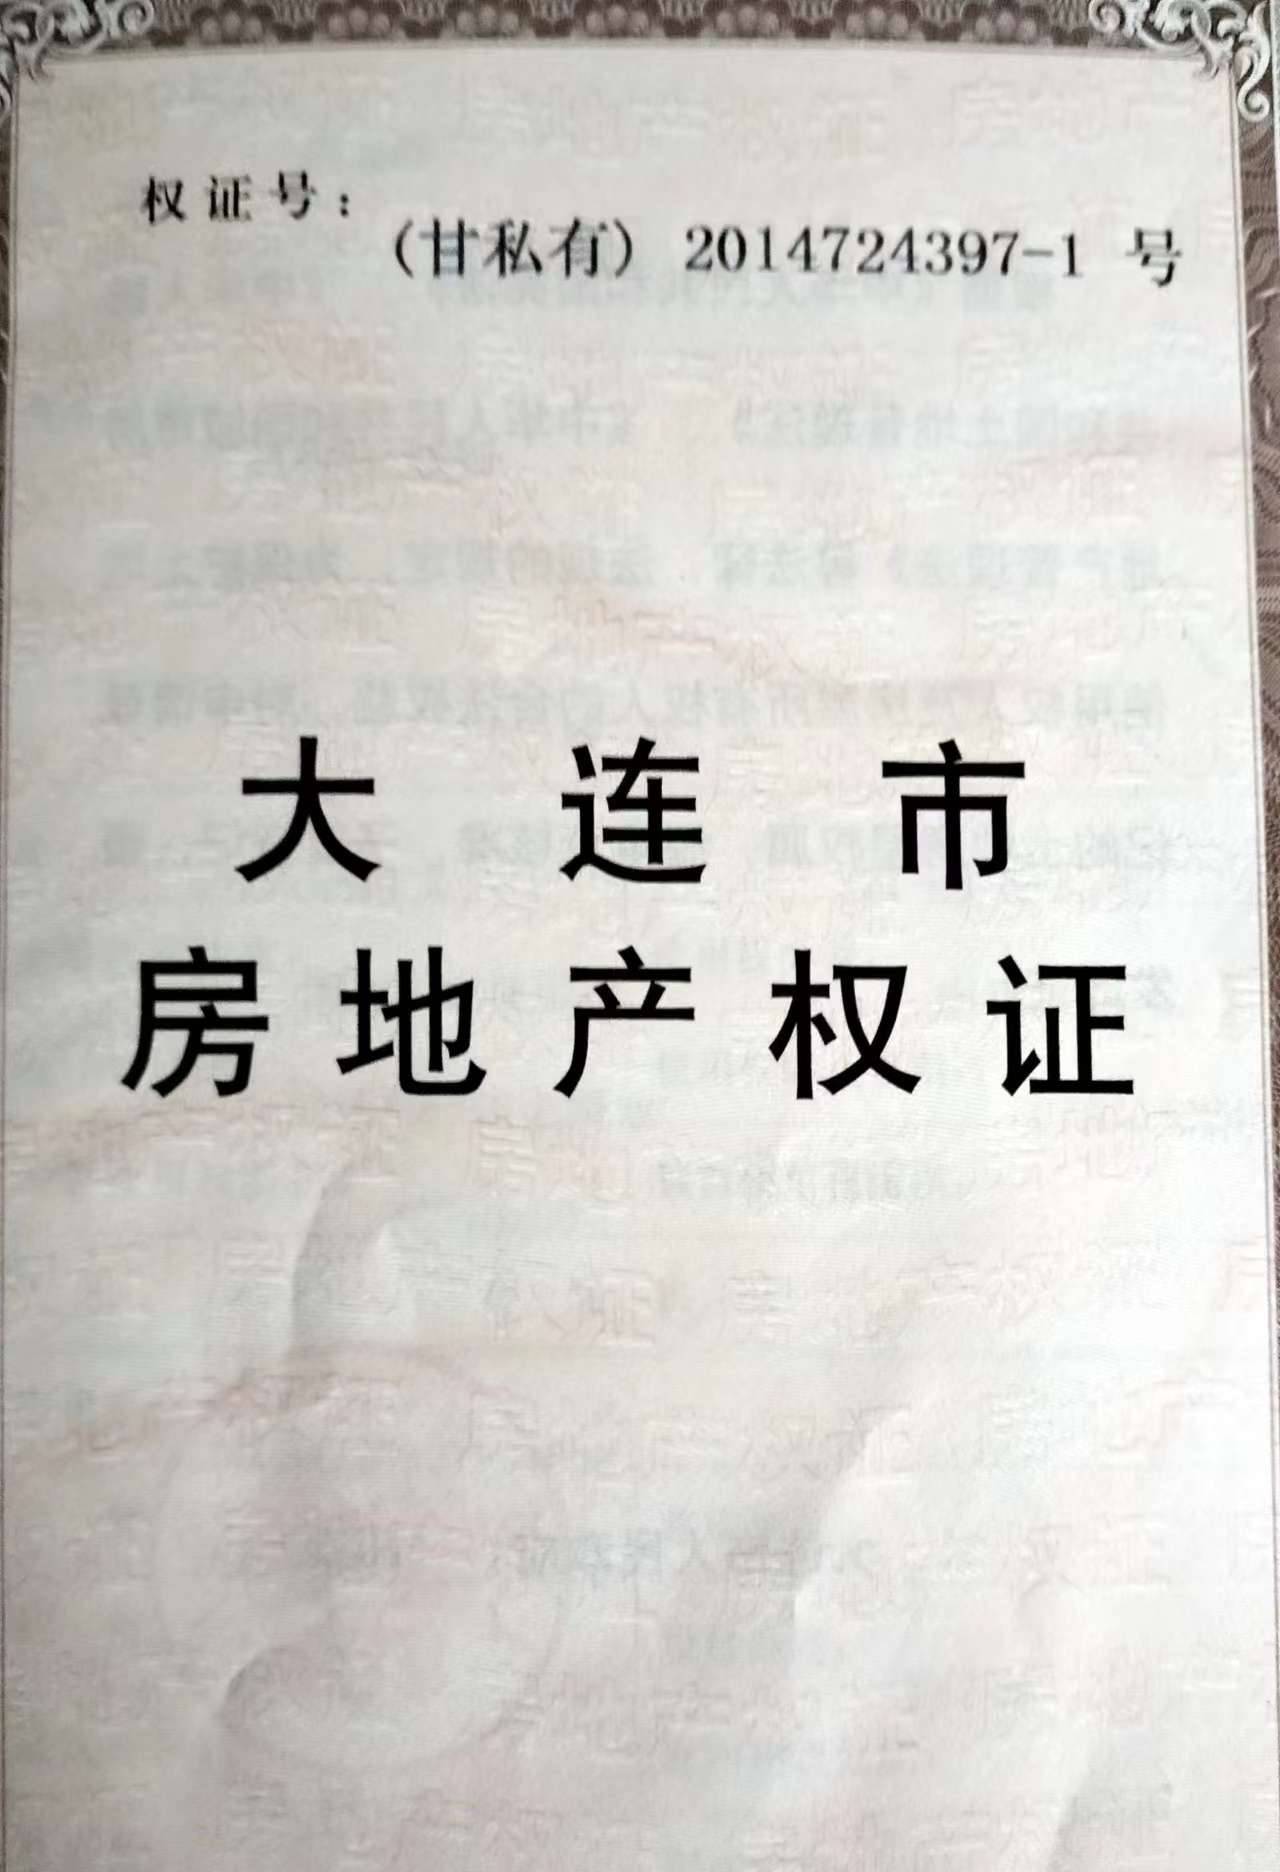 权证号：
（甘私有）2014724397-1 号
大连市
房地产权证